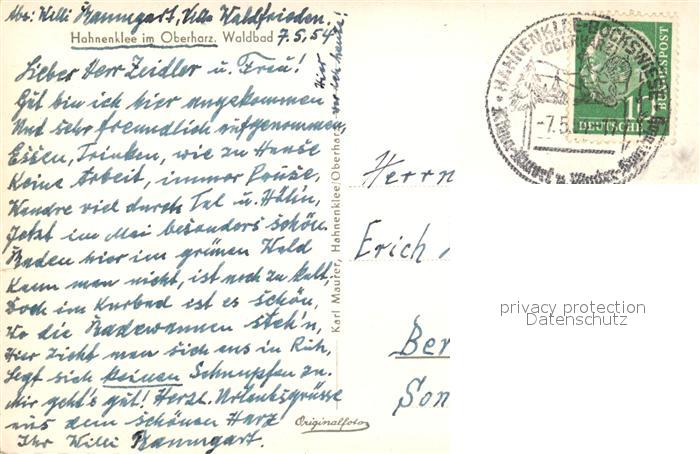 Abs: Willi Baumgart, Villa Waldfrieden.
Hahnenklee im Oberharz. Waldbad
7.5.54
Lieber Herr Zeidler u. Frau!
Gut bin ich hier angekommen
Und sehr freundlich aufgenommen,
Essen, Trinken, wie zu Hause
Keine Arbeit, immer Pause,
Wandre viel durch Tal u. Höh'n,
Jetzt im Mai besonders schön.
Baden hier im grünen Wald
Kann man nicht, ist noch zu kalt,
Doch im Kurbad ist es schön,
Wo die Badewannen steh'n,
Hier zieht man sich aus in Ruh,
Legt sich keinen Schnupfen zu.
Mir geht's gut! Herzl. Urlaubsgrüsse
aus dem schönen Harz
Ihr Willi Baumgart.
Hier
Karl Maurer, Hahnenklee/Oberharz
Originalfoto
Herrn
Erich
Ber
Son
HAHNENKLEE-BOCKSWIESE
(OBERHARZ)
-7.5.
10
DEUTSCHE
BUNDESPOST
privacy protection
Datenschutz